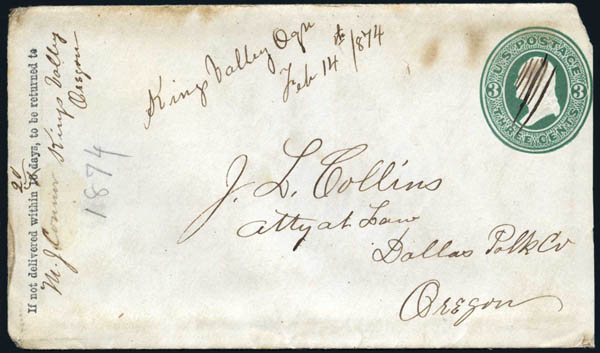 If not delivered within 10 days, to be returned to
20
M. J. Connor Kings Valley
Oregon
1874
Kings Valley Ogn
Feb 14th 1874
U.S. POSTAGE
3
3
THREE CENTS
J. L. Collins
Atty at Law
Dallas Polk Co
Oregon